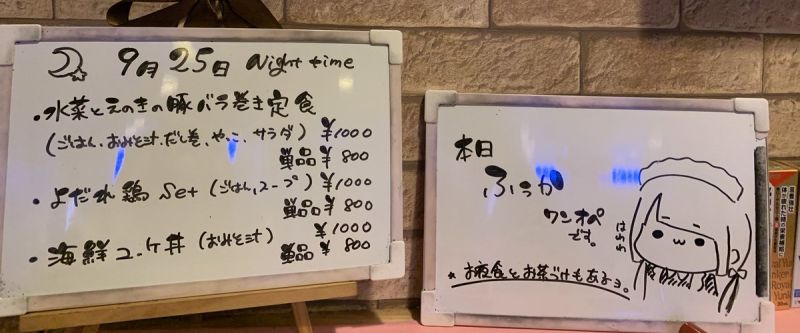 9月25日 Night time
・水菜とえのきの豚バラ巻き定食
(ごはん、おみそ汁、だし巻、やっこ、サラダ) ¥1000
単品¥800
・よだれ鶏 Set (ごはん、スープ) ¥1000
単品¥800
・海鮮ユッケ丼 (おみそ汁) ¥1000
単品¥800
本日
ふっか
ワンオペ
です。
はわわ
* お夜食とお茶づけもあるヨ。
Royal